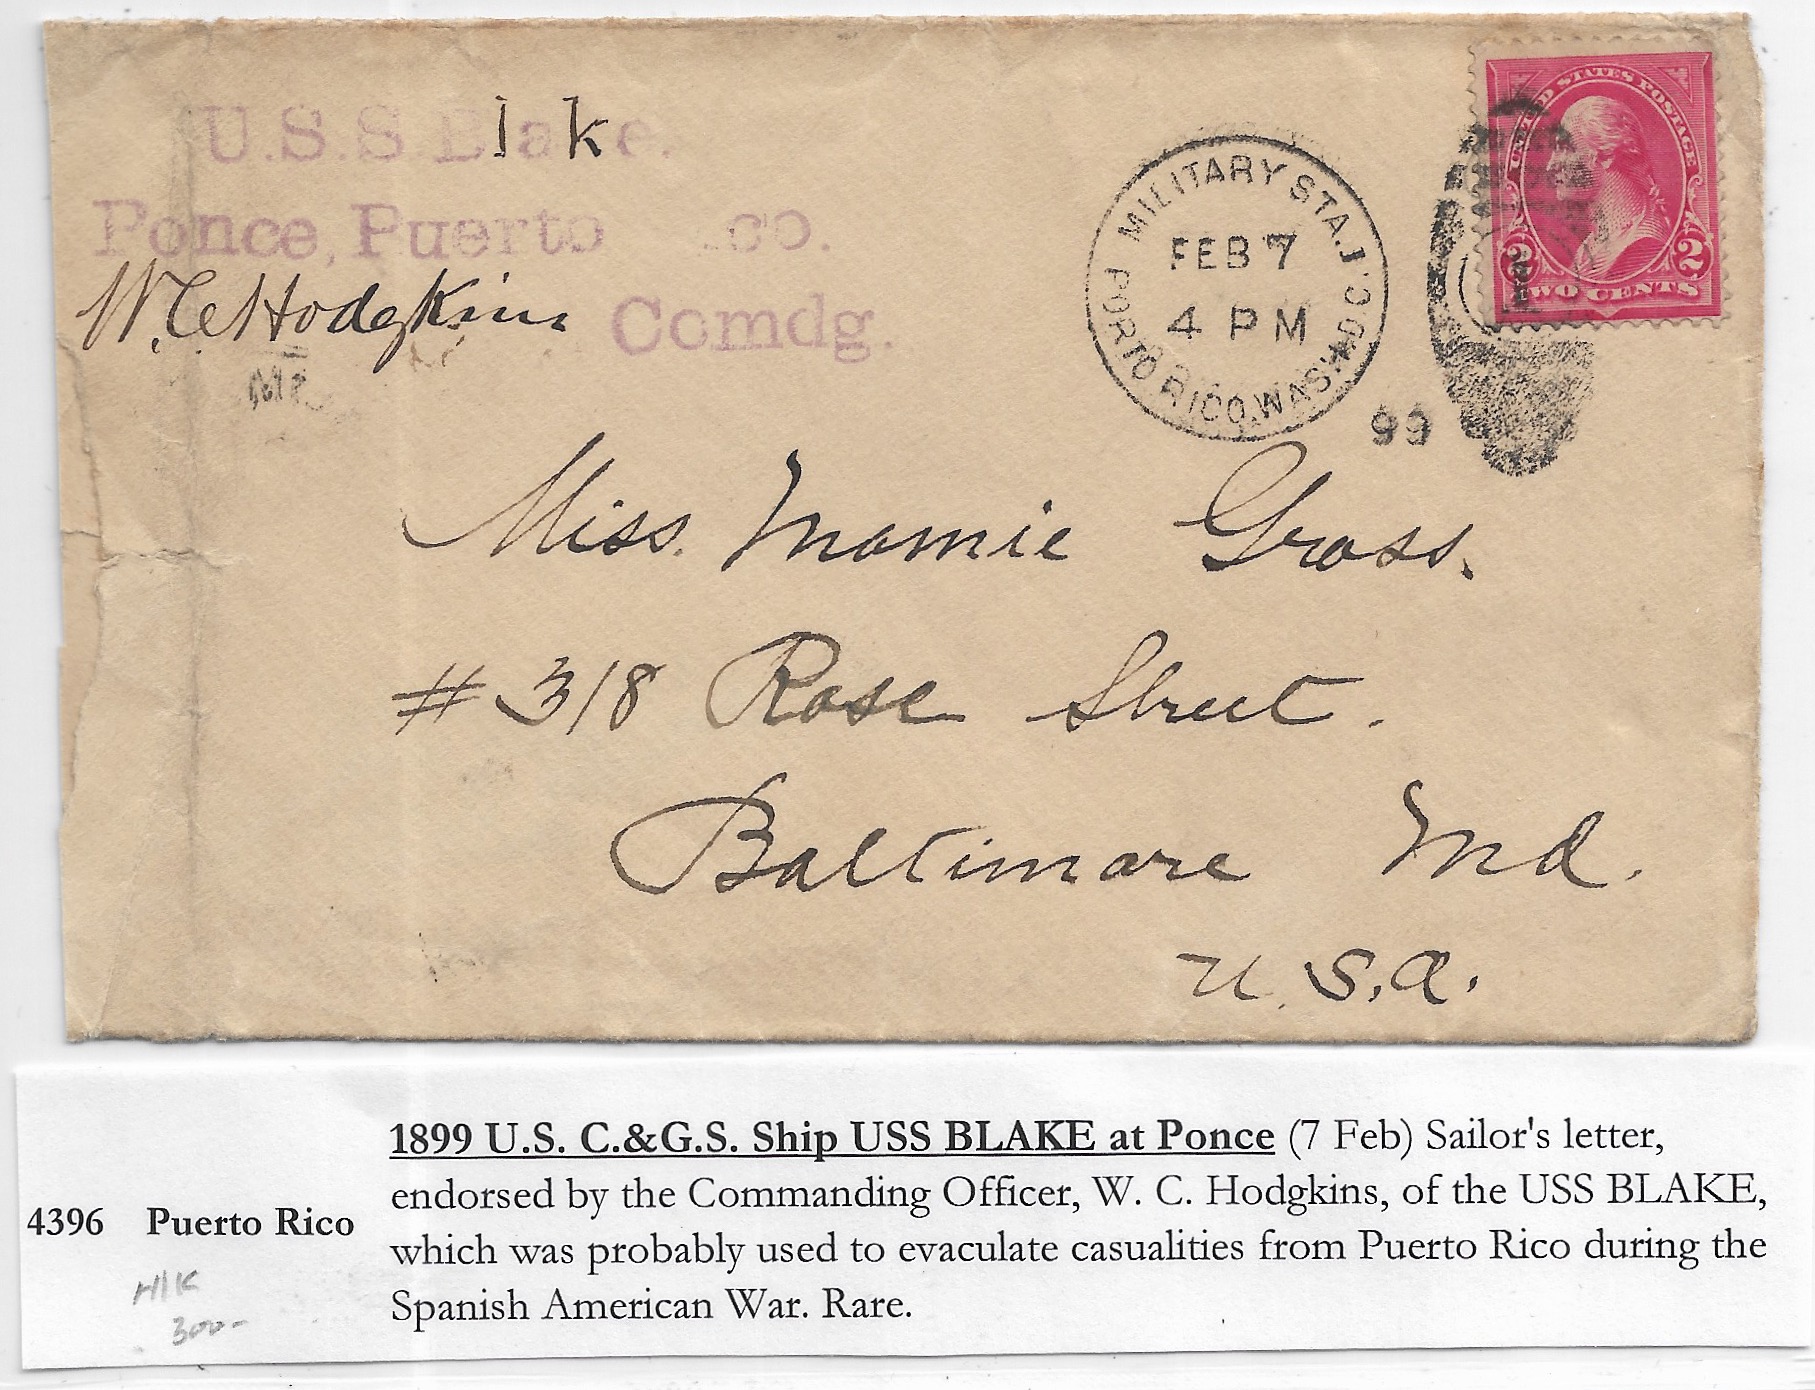 U.S.S. Blake.
Ponce, Puerto ico.
W. C. Hodgkins
Comdg.
MILITARY STA. 1
FEB 7
4 P M
PORTO RICO, WASH. D.C.
99
UNITED STATES POSTAGE
2 2
TWO CENTS
Miss. Mamie Gross.
# 318 Rose Street.
Baltimore Md.
U.S.A.
1899 U.S. C.&G.S. Ship USS BLAKE at Ponce (7 Feb) Sailor's letter,
endorsed by the Commanding Officer, W. C. Hodgkins, of the USS BLAKE,
4396 Puerto Rico
which was probably used to evaculate casualities from Puerto Rico during the
Spanish American War. Rare.
H/K
300-